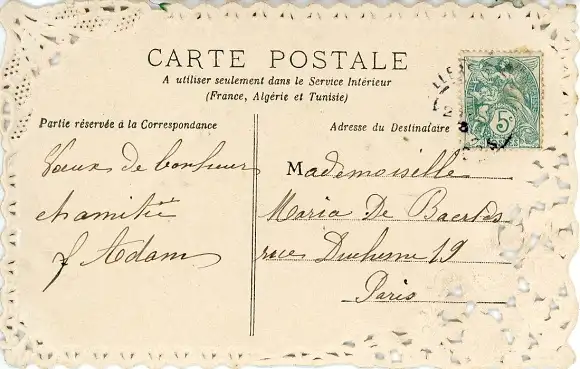 CARTE POSTALE
A utiliser seulement dans le Service Intérieur
(France, Algérie et Tunisie)
Partie réservée à la Correspondance
Adresse du Destinataire
Vœux de bonheur
et amitié
J Adam
Mademoiselle
Maria De
rue Duchesne 19
Paris
5c